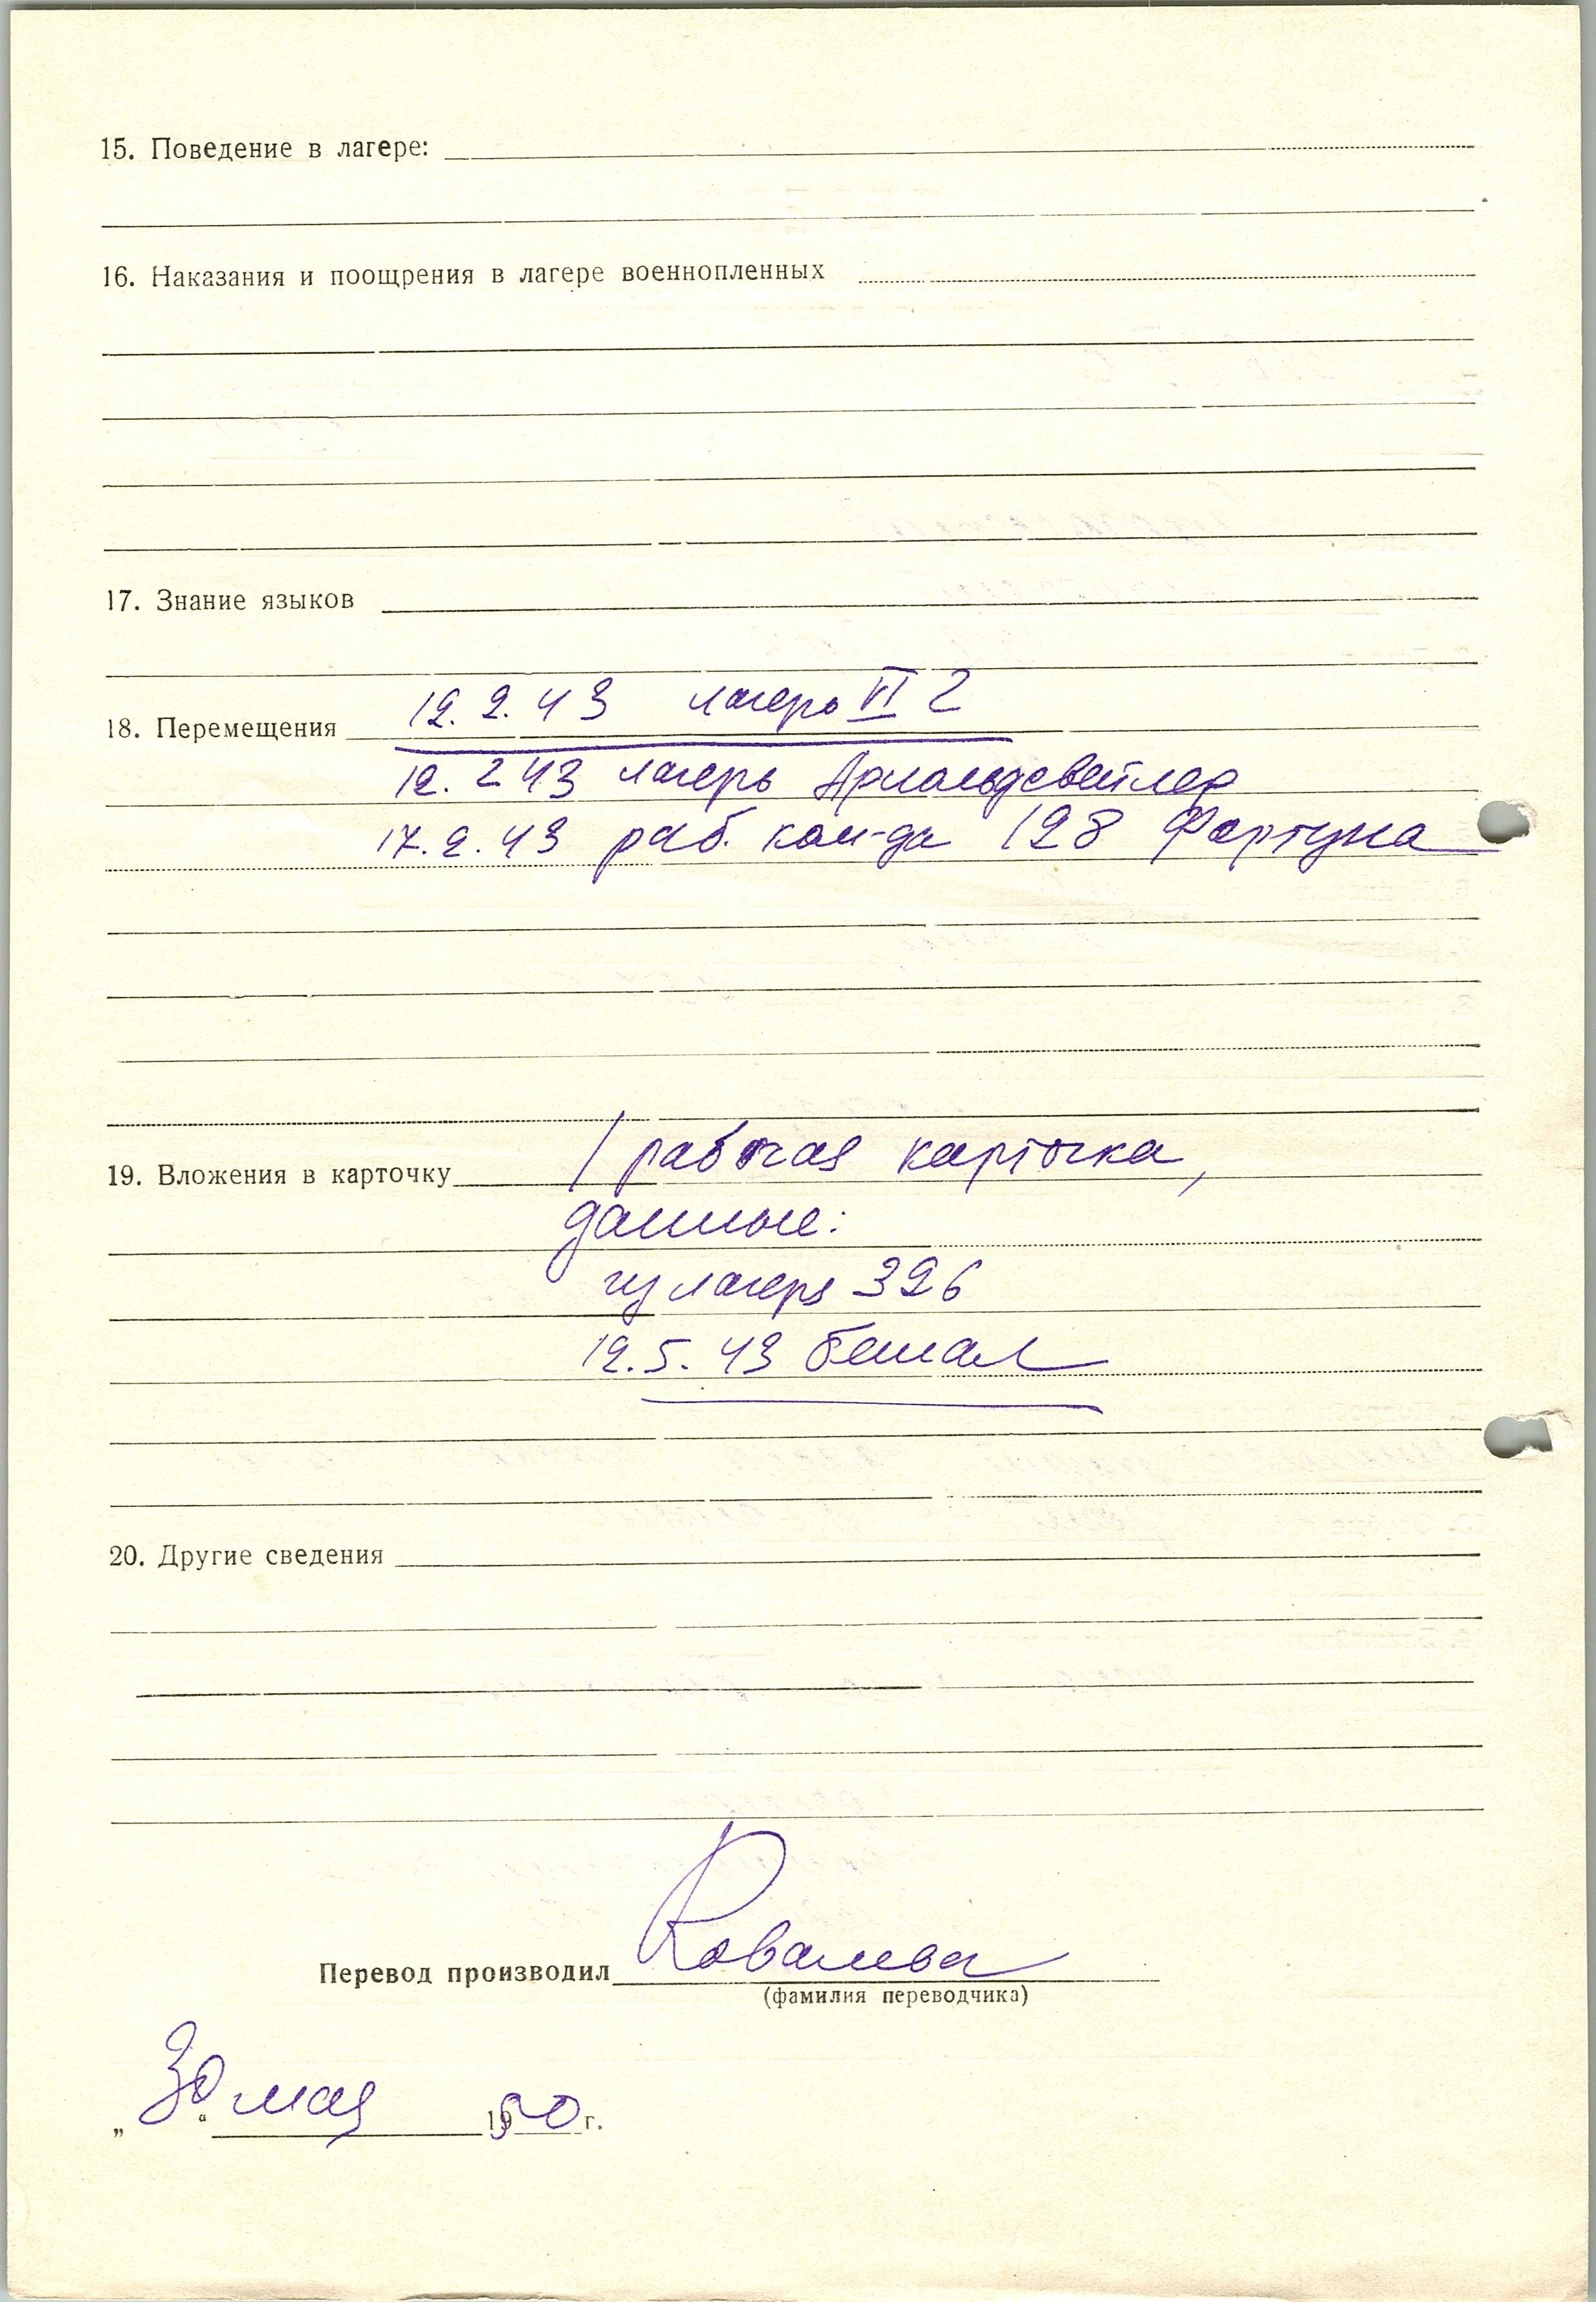 15. Поведение в лагере:
16. Наказания и поощрения в лагере военнопленных
17. Знание языков
18. Перемещения 12.2.43 лагерь VI Г
12.2 43 лагерь Арнольдсвейлер
17.2.43 раб. ком-да 128 Фортуна
19. Вложения в карточку 1 рабочая карточка,
данные:
из лагеря 326
12.5.43 бежал
20. Другие сведения
Перевод производил Ковалева
(фамилия переводчика)
„30“ мая 1950 г.